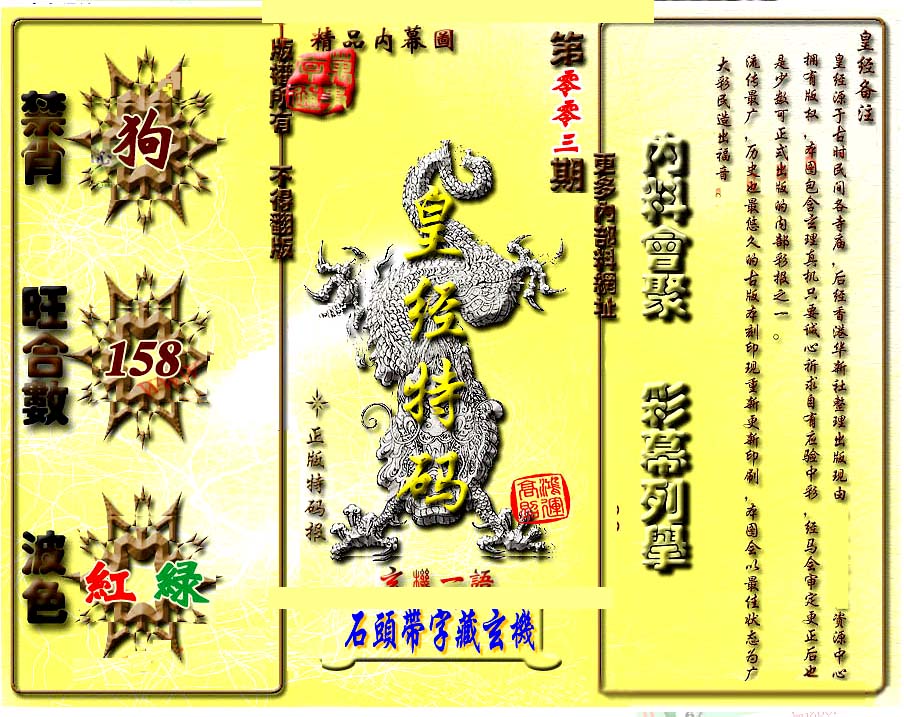 精品内幕圖
第零零三期
版權所有 不得翻版
更多內部料網址
禁肖
狗
旺合數
158
波色
紅 綠
皇经特码
正版特码报
鴻運高照
玄機一語
石頭帶字藏玄機
內料會聚 彩幕列舉
皇经备注
皇经源于古时民间各寺庙，后经香港华新社整理出版现由 资源中心
拥有版权，本图包含玄理真机只要诚心祈求自有应验中彩，经马会审定更正后也
是少数可正式出版的内部彩报之一。
流传最广，历史也最悠久的古版本刻印现重新更新印刷，本图会以最佳状态为广
大彩民造出福音